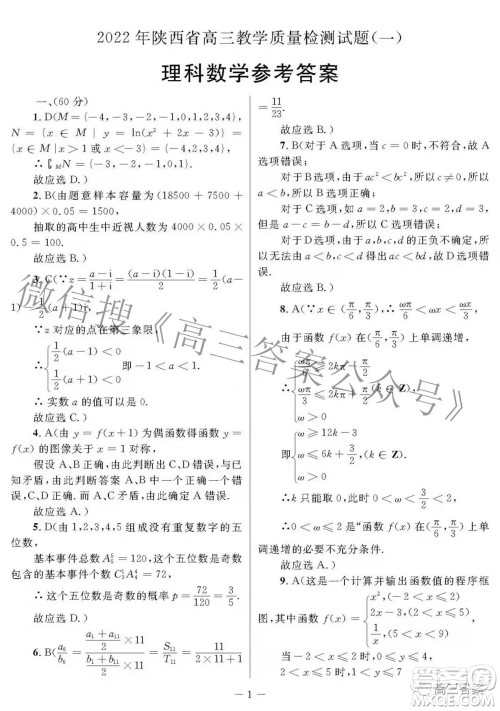 2022年陕西省高三教学质量检测试题(一)
理科数学参考答案
一、(60分)
1. D(M={-4,-3,-2,-1,0,1,2,3,4},
N={x∈M|y=ln(x²+2x-3)}=
{x∈M|x>1或x<-3}={-4,2,3,4},
∴∁MN={-3,-2,-1,0,1}.
故应选D.)
2. B(由题意样本容量为(18500+7500+
4000)×0.05=1500,
抽取的高中生中近视人数为4000×0.05×
0.5=100.
故应选B.)
3. C(∵z=(a-i)/(1+i)=(a-i)(1-i)/2=1/2(a-
∵z对应的点在第三象限,
∴{1/2(a-1)<0
即-1<a<1.
∴实数a的值可以是0.
故应选C.)
4. A(由y=f(x+1)为偶函数得函数y=
f(x)的图像关于x=1对称,
假设A、B正确,由此判断出C、D错误,与已
知矛盾,由此判断A、B中有一个错误.
由C、D正确,由此判断出A错误,B正确.
故应选A.)
5. D(由1,2,3,4,5组成没有重复数字的五
位数,
基本事件总数A⁵₅=120,这个五位数是奇数
包含的基本事件个数C¹₃A⁴₄=72,
∴这个五位数是奇数的概率p=72/120=3/5.
故应选D.)
6. B(a₆/b₆=((a₁+a₁₁)/2×11)/((b₁+b₁₁)/2×11)=S₁₁/T₁₁=(2×11)/(2×11+1)
=11/23.
故应选B.)
7. B(对于A选项,当c=0时,不成立,故A选
项错误;
对于B选项,由于ac²<bc²,所以c≠0,所以
a<b,故B选项正确.
对于C选项,当a=2,b=3,c=2,d=3
时,a-c=b-d,故C选项错误.
对于D选项,由于a,b,c,d的正负不确定,所
以无法由a<b,c<d得出ac<bd,故D选项错误.
故应选B.)
8. A(∵x∈(π/6,π/3),∴ωπ/6<ωx<ωπ/3.
由于函数f(x)在(π/6,π/3)上单调递增,
∴{ωπ/6≥2kπ-π/2
ωπ/3≤2kπ+π/2,(k∈Z)
ω>0
∴{ω≥12k-3
(k∈Z)
ω>0
∴k只能取0,∴0<ω≤3/2,
∴0<ω<2是函数f(x)在(π/6,π/3)上单
调递增的必要不充分条件.
故应选A.)
9. A(这是一个计算并输出函数值的程序框
图,其中函数f(x)={x²,(-2<x≤2)
2x-3,(2<x≤5)
1/x,(x≤-2或x>5)
当-2<x≤2时,0≤x²≤4,
— 1 —
微信搜《高三答案公众号》
答案圈